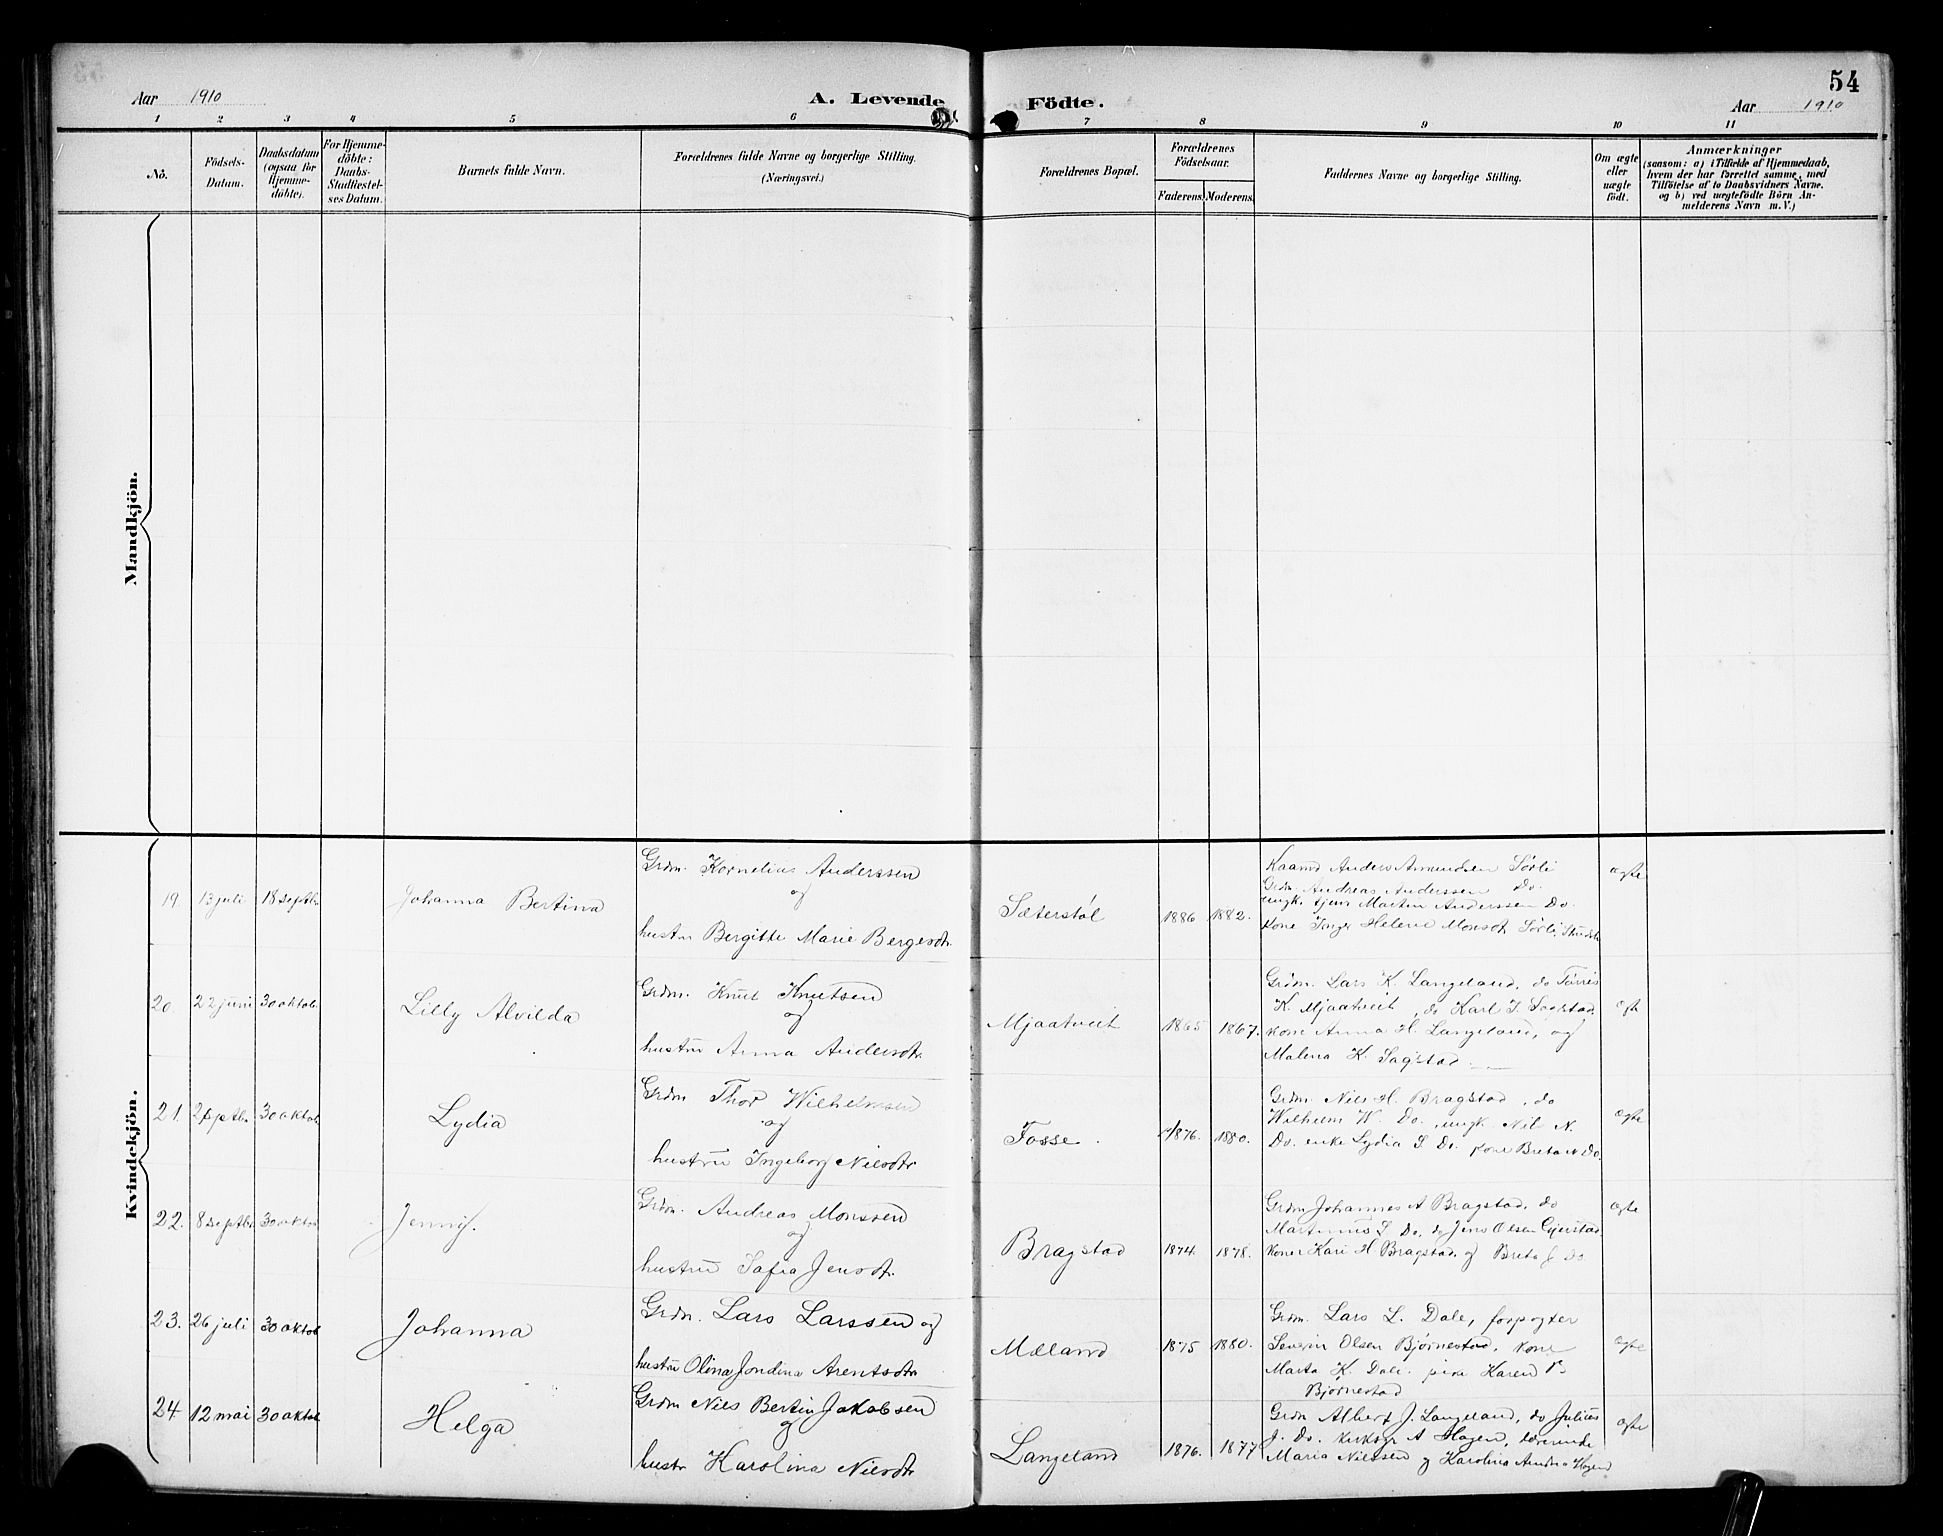 54
Aar 1910
A. Levende Födte.
Aar 1910
1 2 3 4 5 6 7 8 9 10 11
No.
Födsels-
Datum.
Daabsdatum
(ogsaa for
Hjemme-
döbte).
For Hjemme-
döbte:
Daabs-
Stadfæstel-
ses Datum.
Barnets fulde Navn.
Forældrenes fulde Navne og borgerlige Stilling.
(Næringsvei.)
Forældrenes Bopæl.
Forældrenes
Födselsaar.
Faderens. Moderens.
Faddernes Navne og borgerlige Stilling.
Om ægte
eller
uægte
født.
Anmærkninger
(saasom: a) i Tilfælde af Hjemmedaab,
hvem der har forrettet samme, med
Tilföielse af to Daabsvidners Navne.
og b) ved uægtefödte Börn An-
melderens Navn m. V.)
Mandkjön.
Kvindekjön.
19. 13 juli 18 septbr
Johanna Bertina
Grdm. Kornelius Anderssen
og
hustru Bergitte Marie Bergesdtr.
Sæterstøl
1886 1882.
Kaarm Anders Amundsen Sørli
Grdm. Andreas Anderssen Do.
ungk. tjen. Martin Anderssen Do.
kone Inger Helene Monsdt Sørli,
ægte
20. 22 juni 30 oktob.
Lilly Alvilda
Grdm. Knut Knutsen
og
hustru Anna Andersdtr.
Mjaatveit
1865 1867.
Grdm. Lars K. Langeland, do Tørris
K. Mjaatveit, do Karl I. Sagstad,
kone Anna H. Langeland, og
Malena K. Sagstad.
ægte
21. 2 septbr. 30 oktob.
Lydia
Grdm Thor Wilhelmsen
og
hustru Ingeborg Nilsdtr
Fosse.
1876. 1880.
Grdm. Nils H. Bragstad, do
Wilhelm W. Do., ungk Nils N.
Do. enke Lydia S. Do. kone Breta N Do.
ægte
22. 8 septbr. 30 oktob
Jenny.
Grdm. Andreas Monssen
og
hustru Sofia Jensdtr.
Bragstad
1874. 1878.
Grdm Johannes A Bragstad, do
Martinus S. Do, do Jens Olsen Gjerstad,
koner Kari H. Bragstad, og Breta J Do
ægte
23. 26 juli 30 oktob
Johanna
Grdm. Lars Larssen og
hustru Olina Jondina Arentsdtr
Mæland
1875 1880.
Grdm. Lars L. Dale, forpagter
Severin Olsen Bjørnestad, kone
Marta K. Dale. pike Karen
Bjørnestad
ægte
24 12 mai 30 oktob
Helga
Grdm Nils Bertin Jakobsen
og
hustr Karolina Nilsdtr
Langeland
1876. 1877
Grdm Albert J. Langeland, do Julius
J. Do. kirksgr A Hagen, lærerinde
Maria Nilssen og Karolina Andrea Hagen
ægte